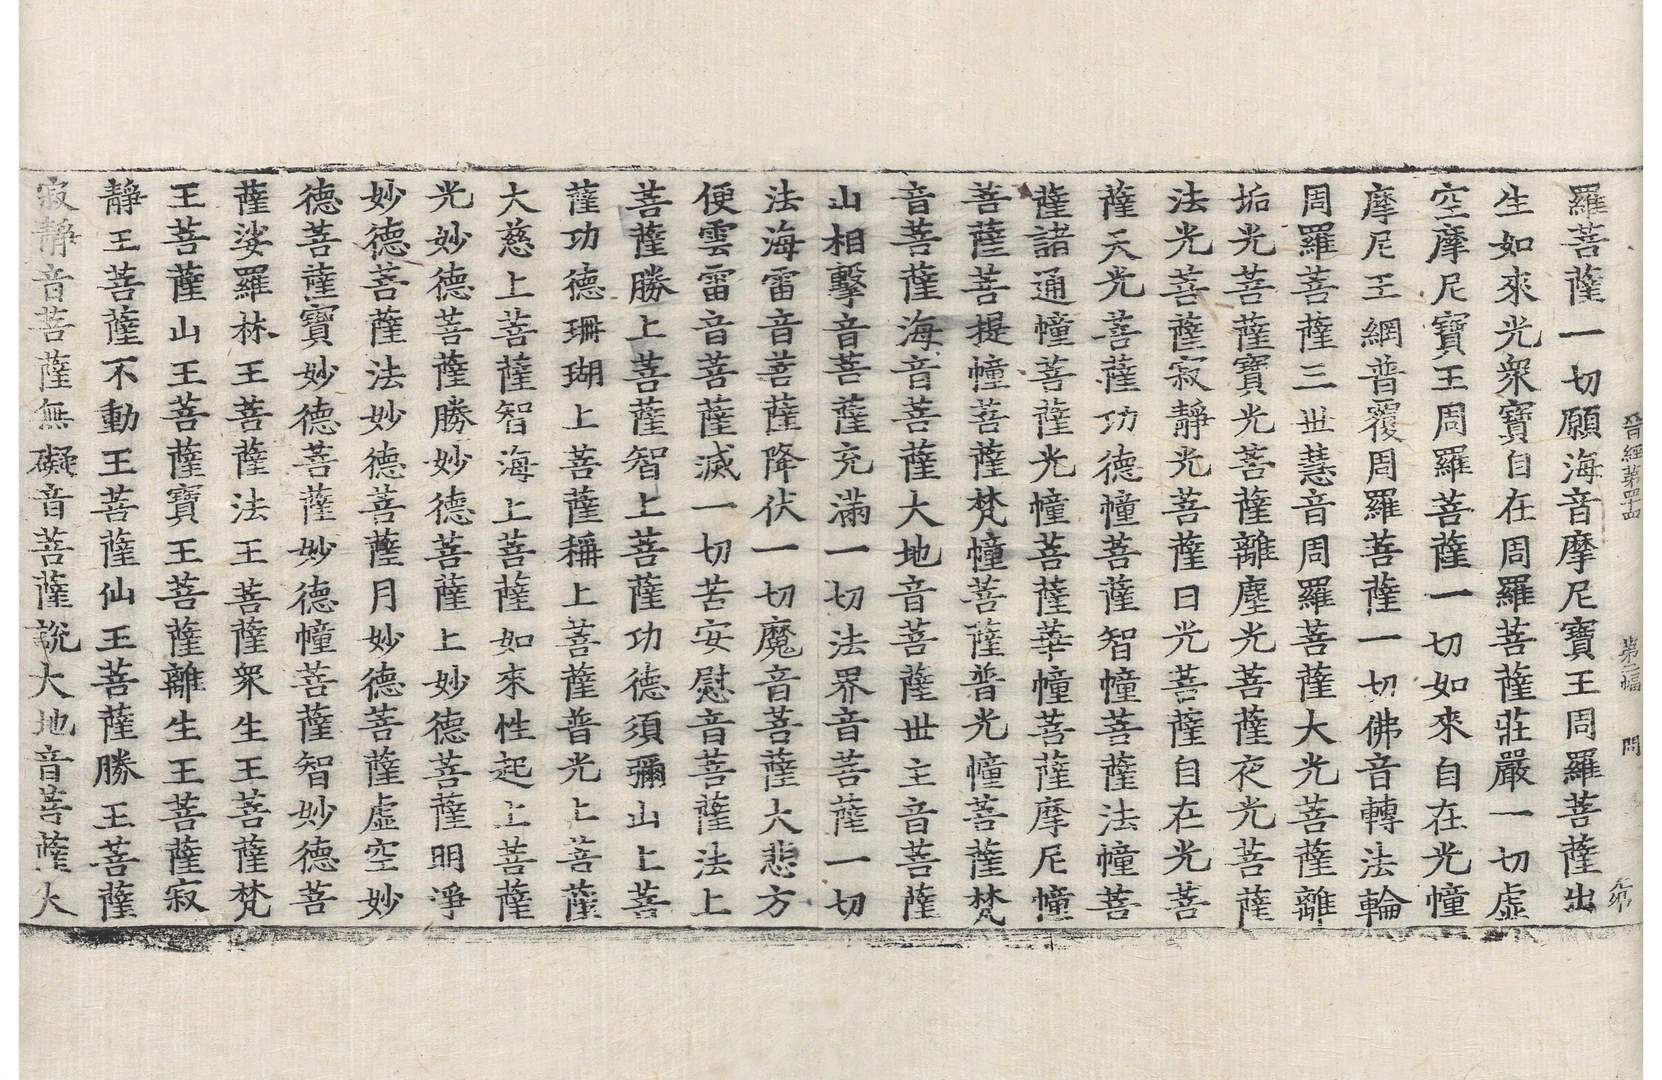 晉經第四十四 第二幅 問
羅菩薩一切願海音摩尼寶王周羅菩薩出
生如來光衆寶自在周羅菩薩莊嚴一切虛
空摩尼寶王周羅菩薩一切如來自在光幢
摩尼王網普覆周羅菩薩一切佛音轉法輪
周羅菩薩三世慧音周羅菩薩大光菩薩離
垢光菩薩寶光菩薩離塵光菩薩夜光菩薩
法光菩薩寂靜光菩薩日光菩薩自在光菩
薩天光菩薩功德幢菩薩智幢菩薩法幢菩
薩諸通幢菩薩光幢菩薩華幢菩薩摩尼幢
菩薩菩提幢菩薩梵幢菩薩普光幢菩薩梵
音菩薩海音菩薩大地音菩薩世主音菩薩
山相擊音菩薩充滿一切法界音菩薩一切
法海雷音菩薩降伏一切魔音菩薩大悲方
便雲雷音菩薩滅一切苦安慰音菩薩法上
菩薩勝上菩薩智上菩薩功德須彌山上菩
薩功德珊瑚上菩薩稱上菩薩普光上菩薩
大慈上菩薩智海上菩薩如來性起上菩薩
光妙德菩薩勝妙德菩薩上妙德菩薩明淨
妙德菩薩法妙德菩薩月妙德菩薩虛空妙
德菩薩寶妙德菩薩妙德幢菩薩智妙德菩
薩娑羅林王菩薩法王菩薩衆生王菩薩梵
王菩薩山王菩薩寶王菩薩離生王菩薩寂
靜王菩薩不動王菩薩仙王菩薩勝王菩薩
寂靜音菩薩無礙音菩薩說大地音菩薩大